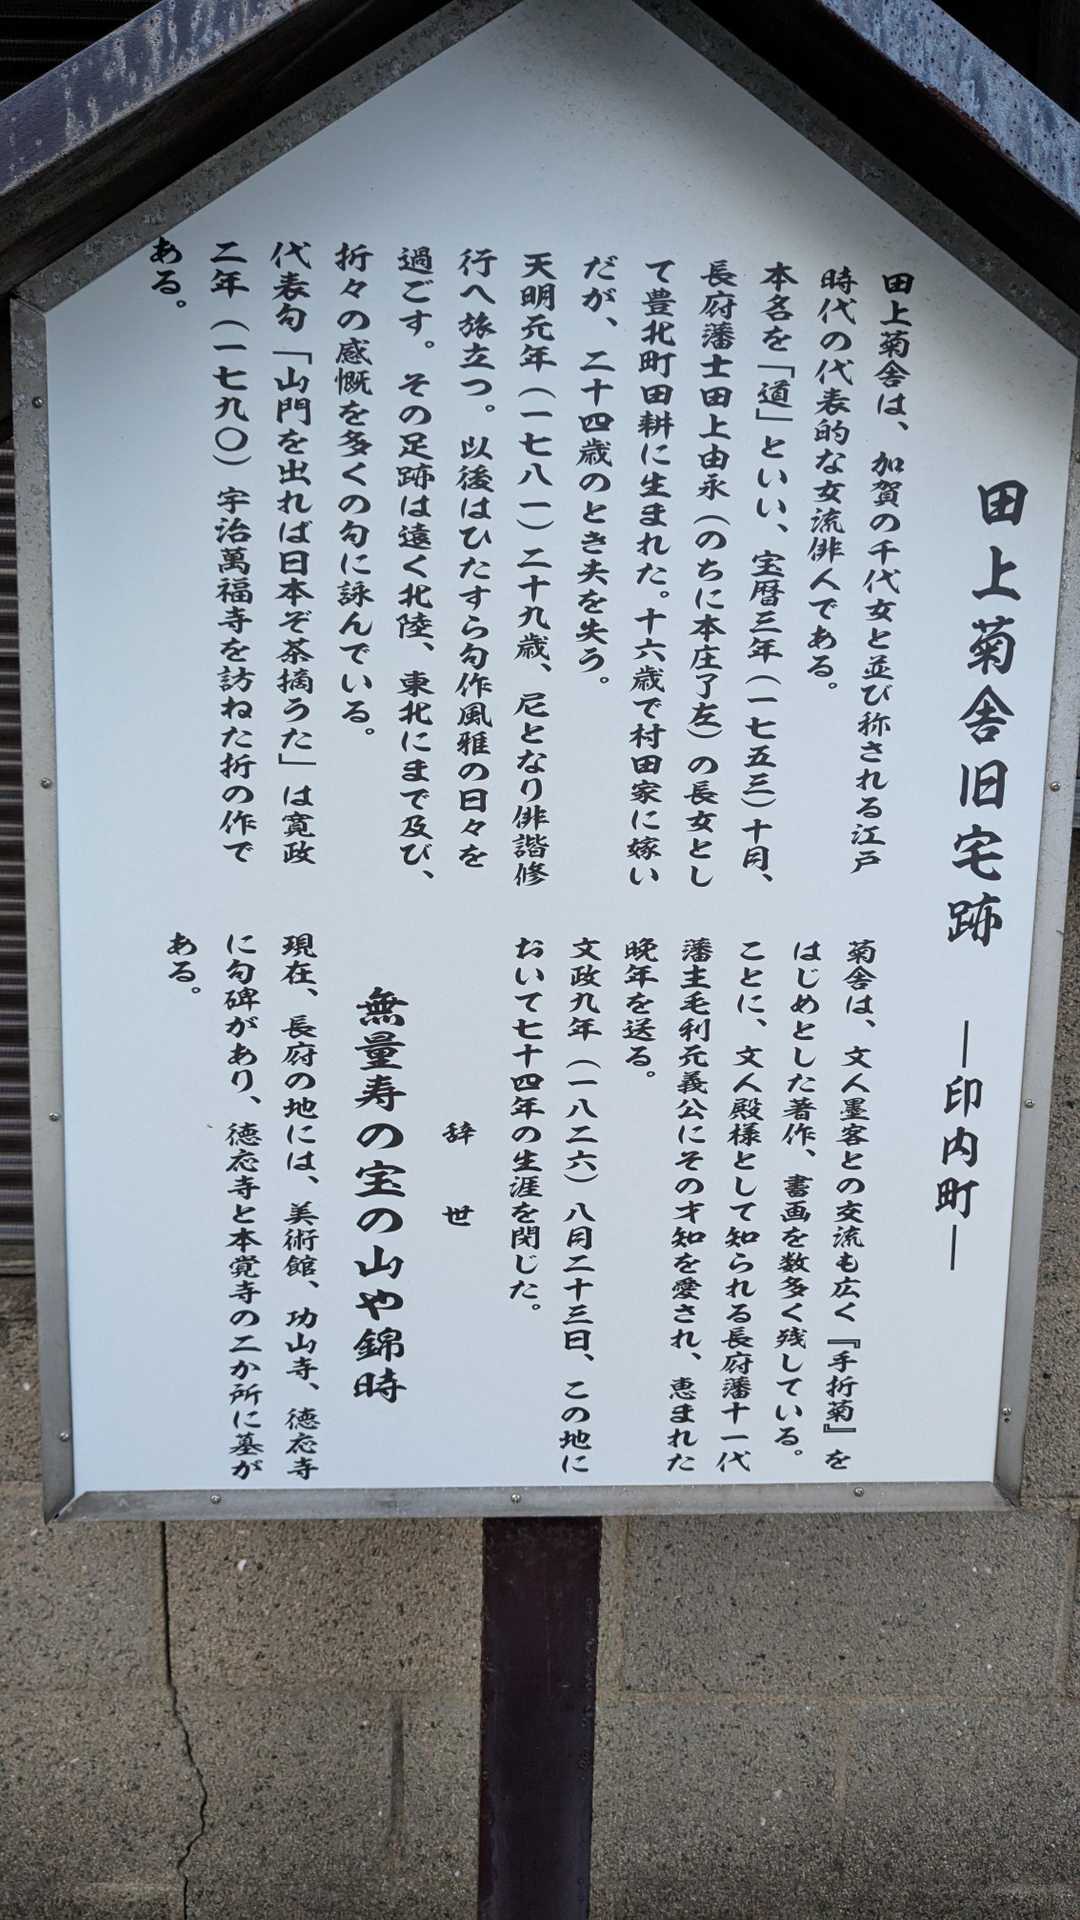 田上菊舎旧宅跡 ―印内町―
田上菊舎は、加賀の千代女と並び称される江戸
時代の代表的な女流俳人である。
本名を「道」といい、宝暦三年（一七五三）十月、
長府藩士田上由永（のちに本庄了左）の長女とし
て豊北町田耕に生まれた。十六歳で村田家に嫁い
だが、二十四歳のとき夫を失う。
天明元年（一七八一）二十九歳、尼となり俳諧修
行へ旅立つ。以後はひたすら句作風雅の日々を
過ごす。その足跡は遠く北陸、東北にまで及び、
折々の感慨を多くの句に詠んでいる。
代表句「山門を出れば日本ぞ茶摘うた」は寛政
二年（一七九〇）宇治萬福寺を訪ねた折の作で
ある。
菊舎は、文人墨客との交流も広く『手折菊』を
はじめとした著作、書画を数多く残している。
ことに、文人殿様として知られる長府藩十一代
藩主毛利元義公にその才知を愛され、恵まれた
晩年を送る。
文政九年（一八二六）八月二十三日、この地に
おいて七十四年の生涯を閉じた。
辞世
無量寿の宝の山や錦時
現在、長府の地には、美術館、功山寺、徳応寺
に句碑があり、徳応寺と本覚寺の二か所に墓が
ある。